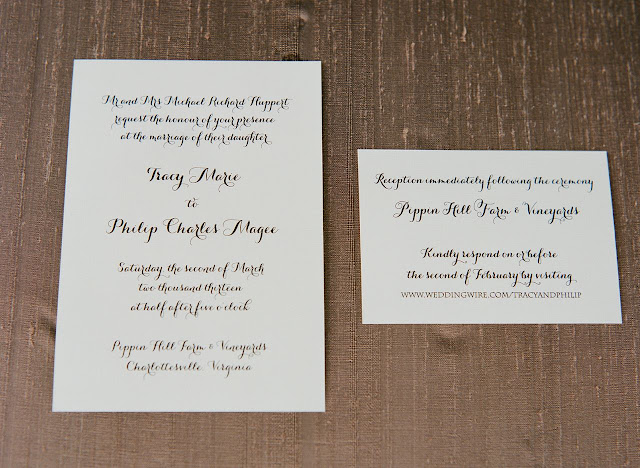 Mr and Mrs Michael Richard Huppert
request the honour of your presence
at the marriage of their daughter
Tracy Marie
to
Philip Charles Magee
Saturday, the second of March
two thousand thirteen
at half after five o'clock
Pippin Hill Farm & Vineyards
Charlottesville, Virginia
Reception immediately following the ceremony
Pippin Hill Farm & Vineyards
Kindly respond on or before
the second of February by visiting
WWW.WEDDINGWIRE.COM/TRACYANDPHILIP